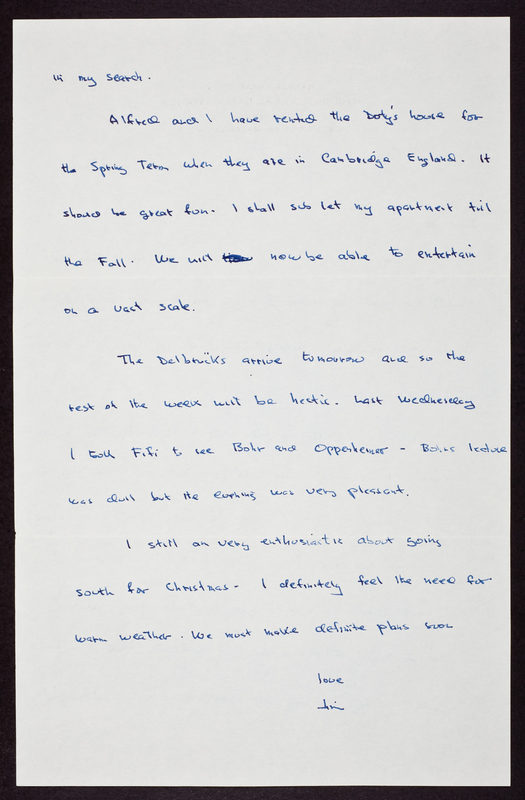 in my search.
Alfred and I have rented the Doty's house for
the Spring Term when they are in Cambridge England. It
should be great fun. I shall sub let my apartment till
the Fall. We will now be able to entertain
on a vast scale.
The Delbrücks arrive tomorrow and so the
rest of the week will be hectic. Last Wednesday
I took Fifi to see Bohr and Oppenheimer - Bohrs lecture
was dull but the evening was very pleasant.
I still am very enthusiastic about going
south for Christmas - I definitely feel the need for
warm weather. We must make definite plans soon
love
Jim